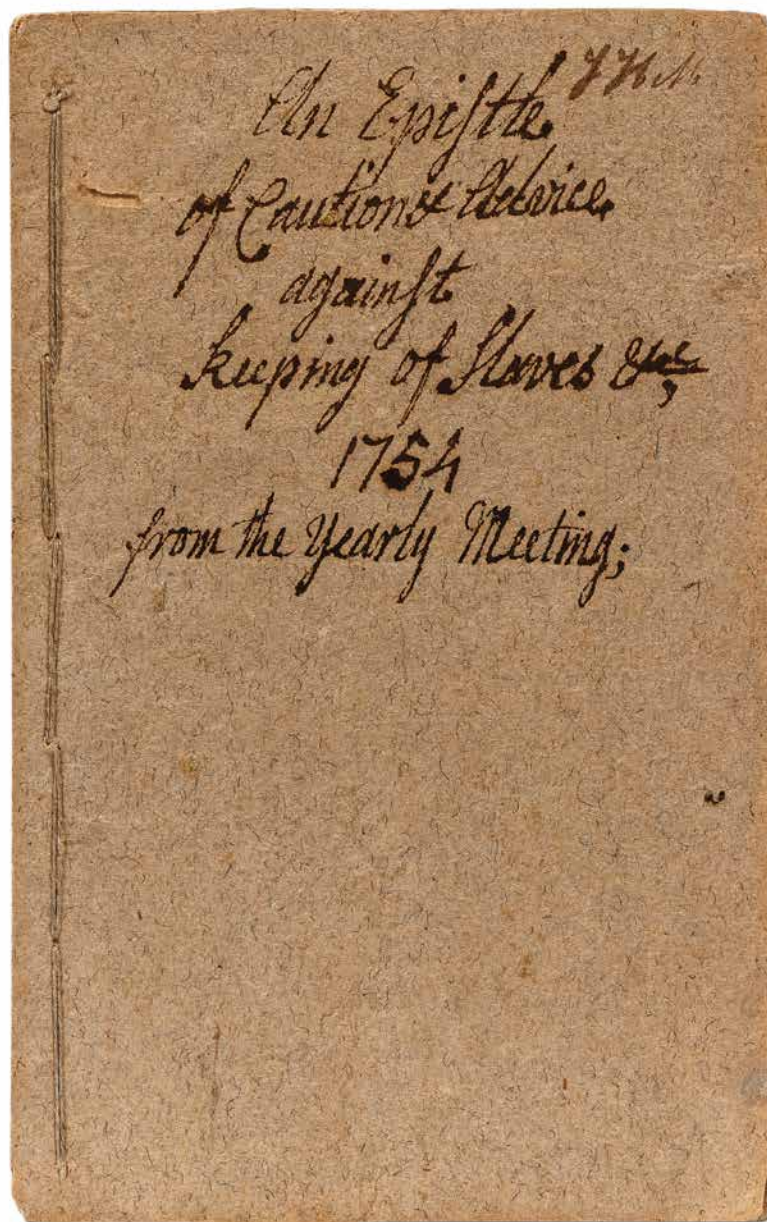 An Epiſtle
of Caution & Advice
againſt
keeping of Slaves &c,
1754
from the Yearly Meeting;